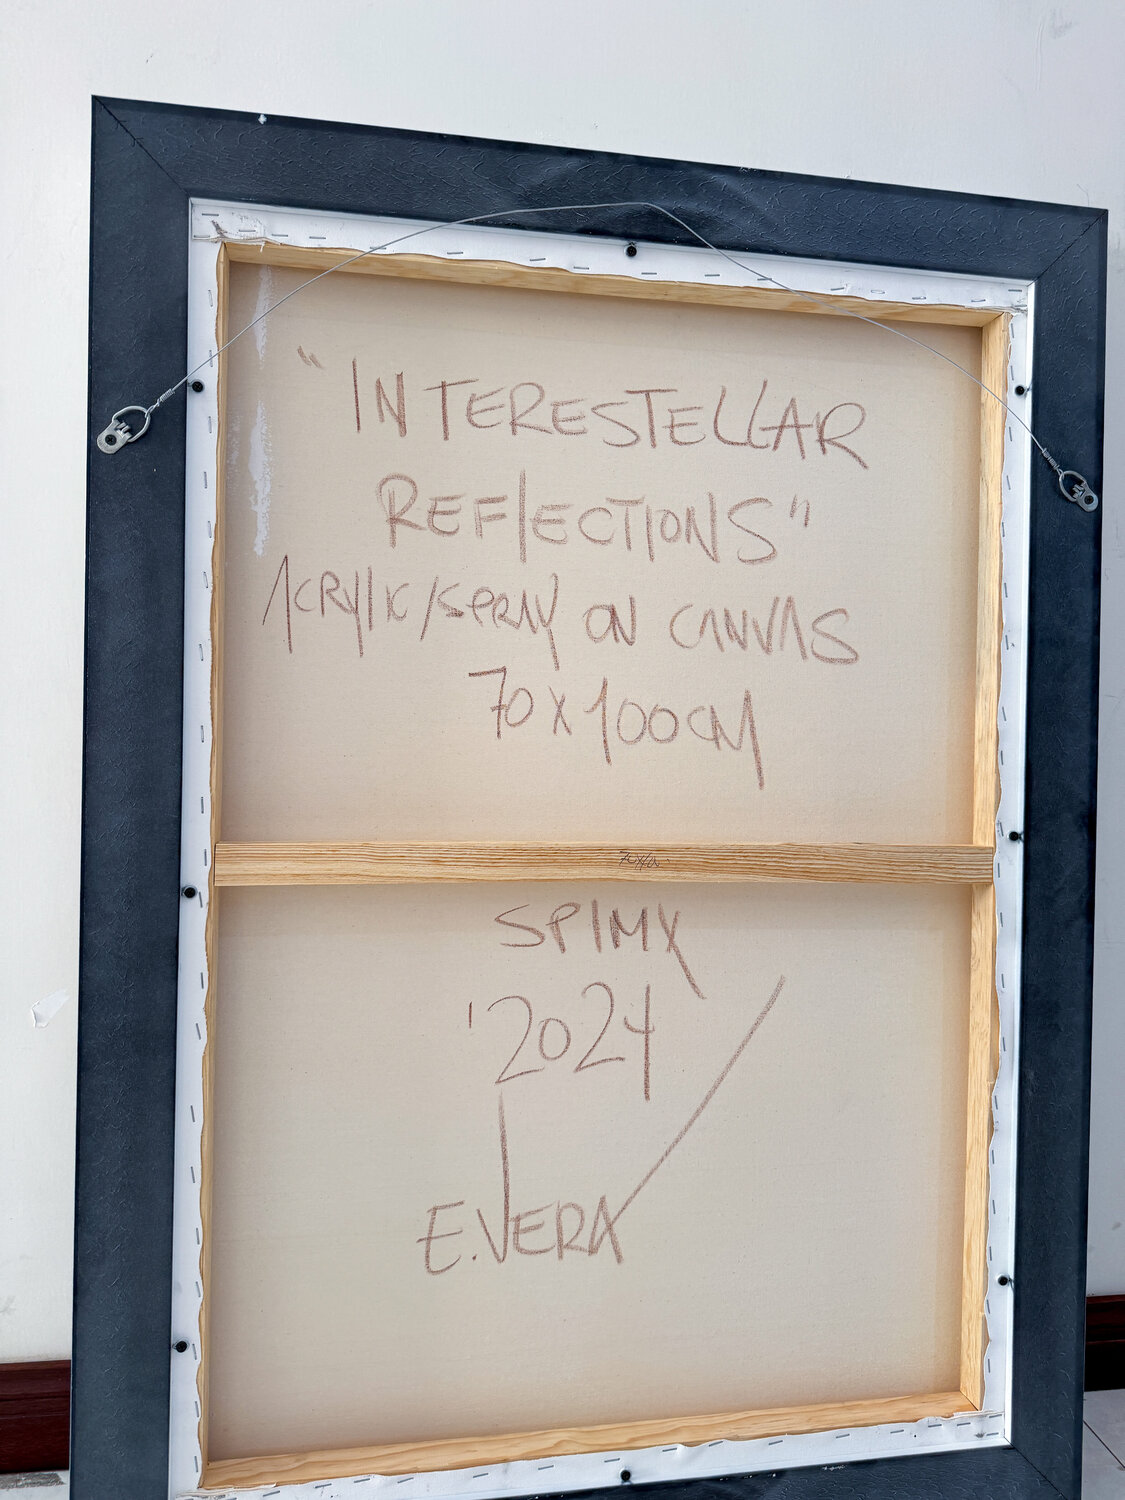 "INTERESTELLAR
REFLECTIONS"
ACRYLIC/SPRAY ON CANVAS
70X100CM
SPIMX
'2024
E.VERA